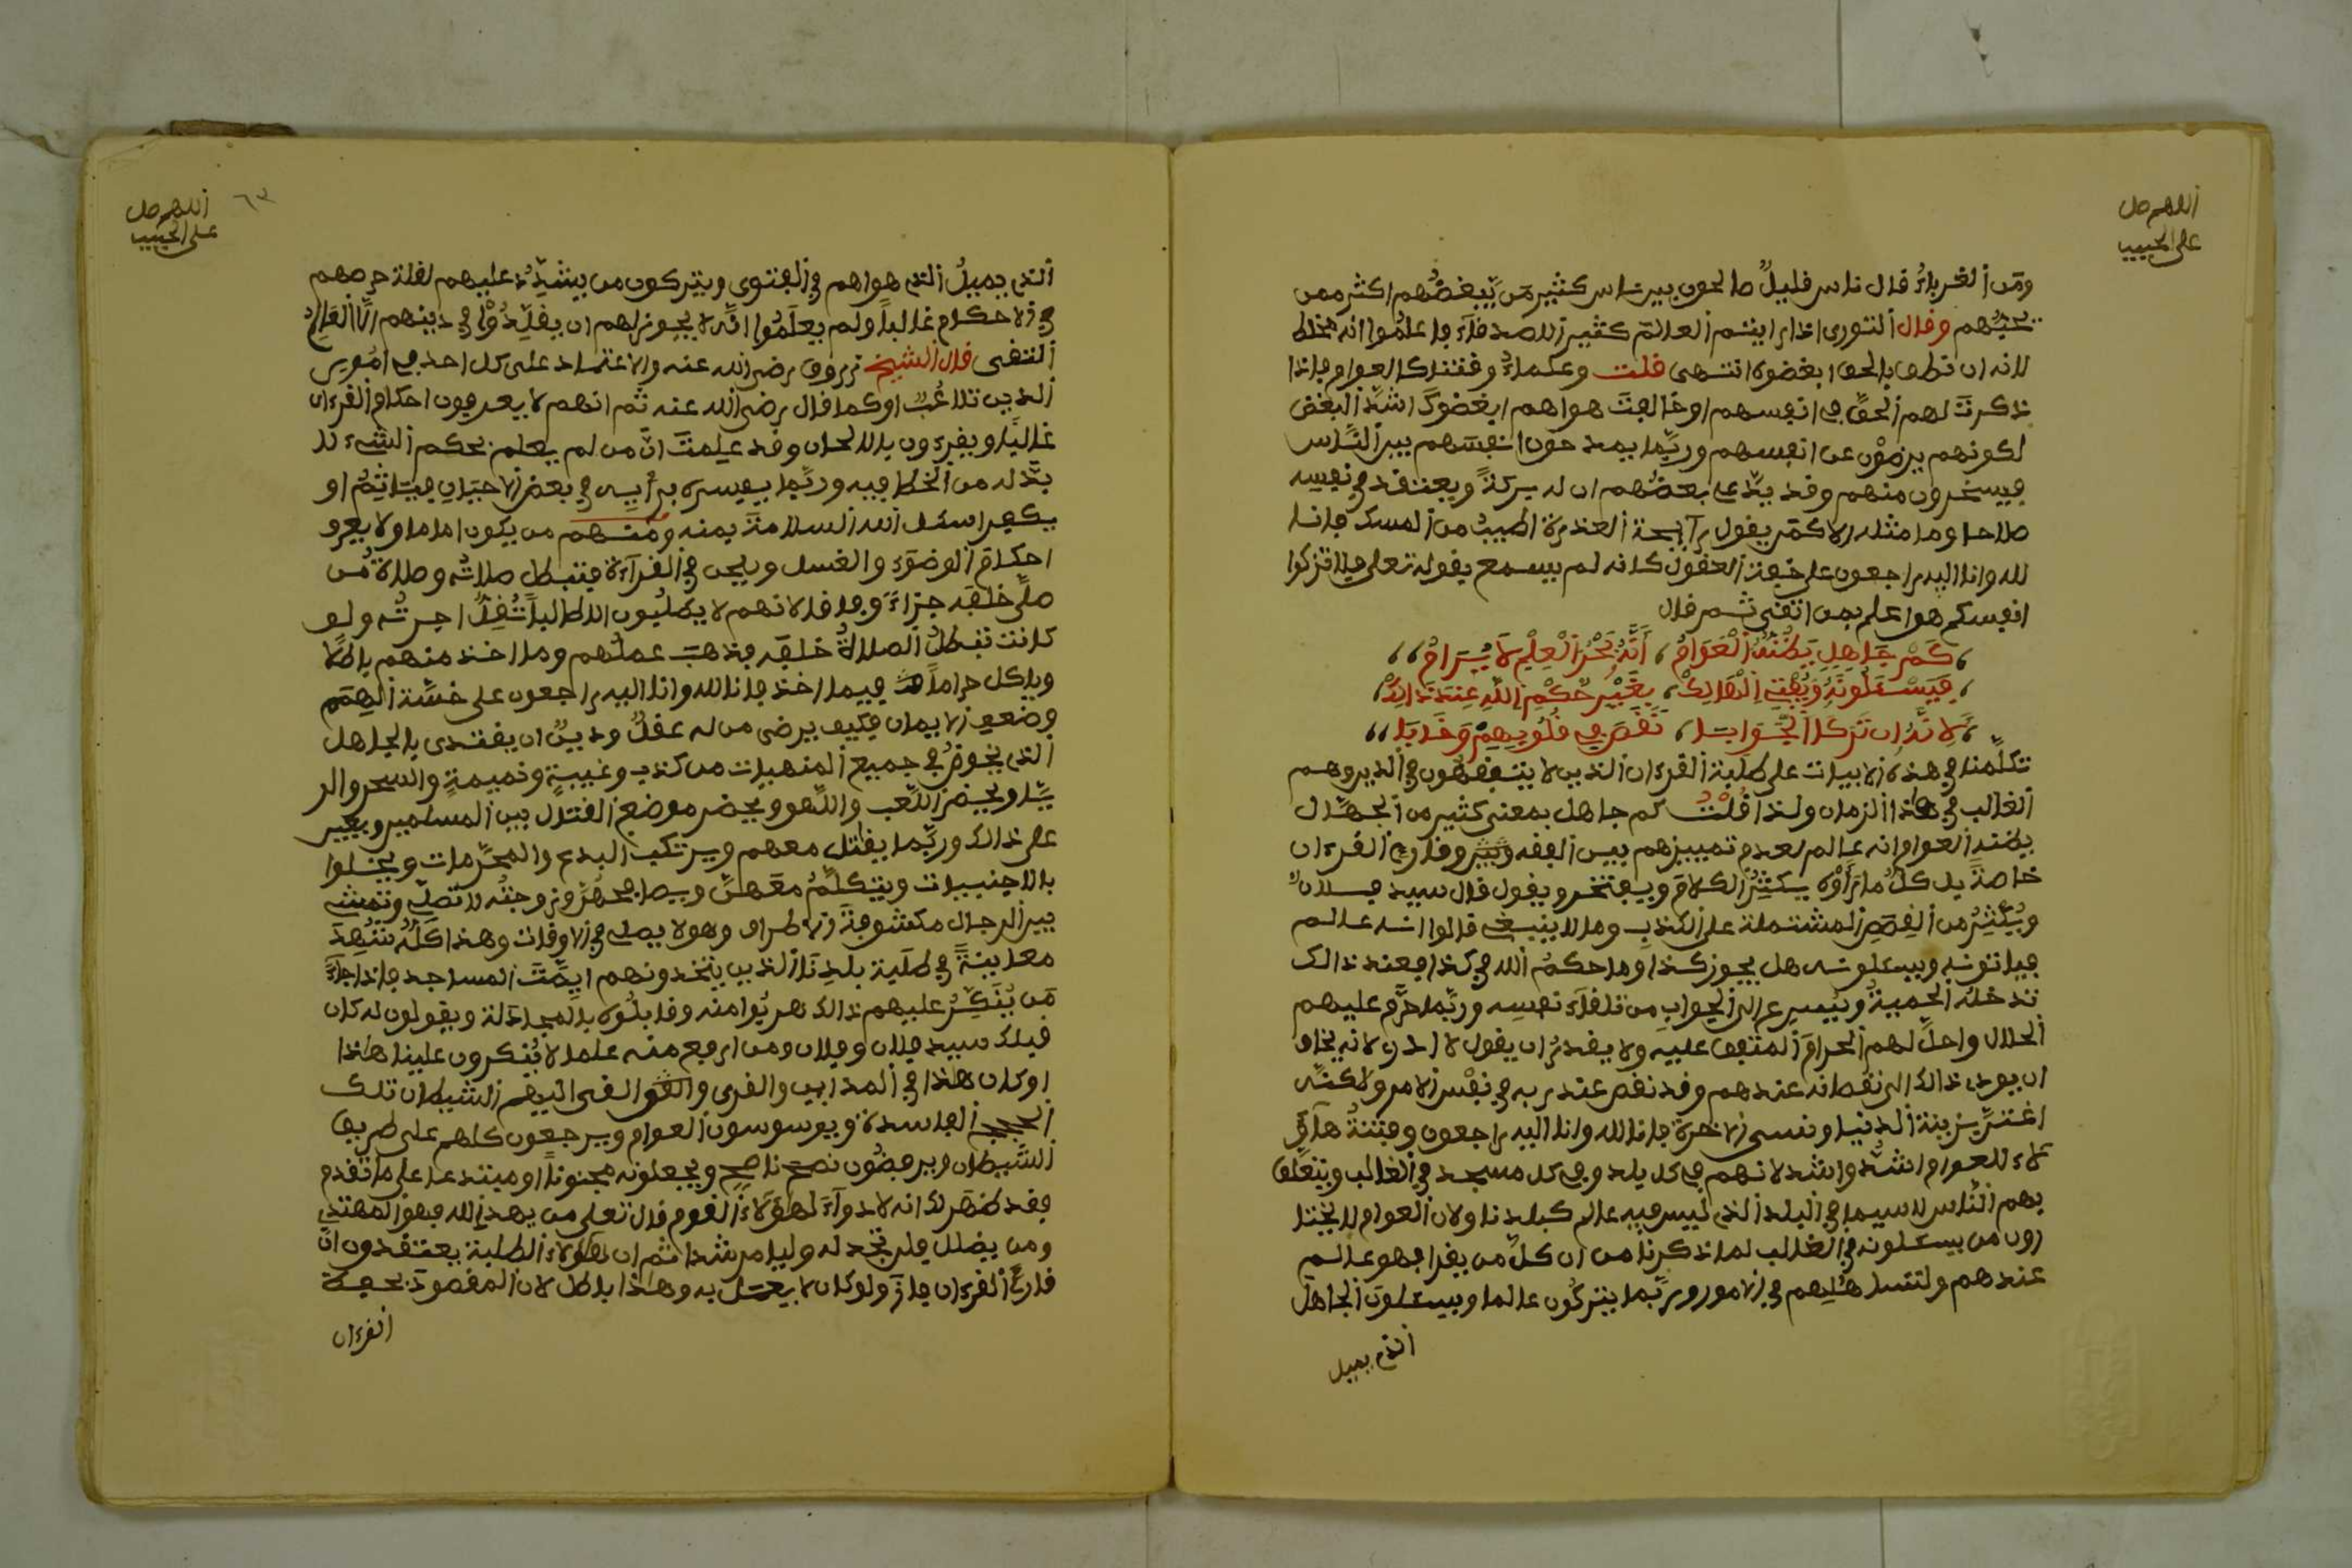 اللهم صل
على الحبيب
ومن الغرباء قال ناس قليل صالحون بين ناس كثير من يبغضهم اكثر ممن
يحبهم وقال الثوري اذا رايتم العالم كثير الاصدقاء فاعلموا انه مخلط
لانه ان نطق بالحق ابغضوه انتهى قلت وعلماء وقتنا كالعوام فاذا
ذكرت لهم الحق في انفسهم او خالفت هواهم ابغضوك اشد البغض
لكونهم يرضون عن انفسهم وربما يمدحون انفسهم بين الناس
فيسخرون منهم وقد يدعي بعضهم ان له بركة ويعتقد في نفسه
صلاحا وما مثله الا كمن يقول رائحة العذرة اطيب من المسك فانا
لله وانا اليه راجعون على خفة العقول كانه لم يسمع بقوله تعلى فلا تزكوا
انفسكم هو اعلم بمن اتقى ثم قال
كَمْ جَاهِلٍ يَظُنُّهُ الْعَوَامُ ، أَنَّهُ بَحْرُ الْعِلْمِ لَا يُرَامُ
فَيَسْـَٔلُونَهُ وَيُفْتِي الْهَالِكْ ، بِغَيْرِ حُكْمِ اللَّهِ عِنْدَ ذَالِكْ
لِأَنَّهُ اِن تَرَكَ الْجَوَابَا ، نَقَصَ فِي قُلُوبِهِمْ وَخَابَا
تكلمنا في هذه الابيات على طلبة القرءان الذين لا يتفقهون في الدين وهم
الغالب في هذا الزمان ولذا قلت كم جاهل بمعنى كثير من الجهال
يظنه العوام انه عالم لعدم تمييزهم بين الفقه وبين وقارئ القرءان
خاصة بل كل ما رأوه يكثر الكلام ويفتخر ويقول قال سيد فلان
ويكثر من القصص المشتملة على الكذب وما لا ينبغي قالوا انه عالم
فياتونه ويسئلونه هل يجوز كذا وما حكم الله في كذا فعند ذالك
تدخله الحمية ويسرع الى الجواب من تلقاء نفسه وربما حرم عليهم
الحلال واحل لهم الحرام المتفق عليه ولا يقدر ان يقول لا ادري لانه يخاف
ان يودي ذالك الى نقصانه عندهم وقد نقص عند ربه في نفس الامر ولاكنه
اغتر بزينة الدنيا ونسي الاخرة فانا لله وانا اليه راجعون وفتنة هاؤ
لاء للعوام اشد واشد لانهم في كل بلد وفي كل مسجد في الغالب ويتعلق
بهم الناس لا سيما في البلد الذي ليس فيه عالم كبلدنا ولان العوام لا يختا
رون من يسئلونه في الغالب لما ذكرنا من ان كل من يقرا فهو عالم
عندهم ولتساهلهم في الامور وربما يتركون عالما ويسئلون الجاهل
الذي يميل
اللهم صل
على الحبيب
٦٣
الذي يميل الى هواهم في الفتوى ويتركون من يشدد عليهم لقلة حرصهم
في الاحكام غالبا ولم يعلموا انه لا يجوز لهم ان يقلدوا في دينهم الا العالم
التقي قال الشيخ زروق رضي الله عنه والاعتماد على كل احد في امور
الدين تلاعب او كما قال رضي الله عنه ثم انهم لا يعرفون احكام القرءان
غالبا ويقرءون بالالحان وقد علمت ان من لم يعلم بحكم الشيء لا
بد له من الخطا فيه وربما يفسره برأيه في بعض الاحيان فياثم او
يكفر اسئل الله السلامة بمنه ومنهم من يكون اماما ولا يعرف
احكام الوضوء والغسل ويلحن في القراءة فتبطل صلاته وصلاة من
صلى خلفه جزاء وفاقا لانهم لا يطلبون الا طالبا تقل اجرته ولو
كانت تبطل الصلاة خلفه فذهب عملهم وما اخذ منهم باطلا
وياكل حراما فيما اخذ فانا لله وانا اليه راجعون على خسة الهمم
وضعف الايمان فكيف يرضى من له عقل ودين ان يقتدي بالجاهل
الذي يخوض في جميع المنهيات من كذب وغيبة ونميمة والسحر والر
يا ويحضر اللعب واللهو ويحضر موضع القتال بين المسلمين ويعين
على ذالك وربما يقاتل معهم ويرتكب البدع والمحرمات ويخلوا
بالاجنبيات ويتكلم معهن ويصافحهن وزوجته لا تصلي وتمشي
بين الرجال مكشوفة الاطراف وهو لا يصلي في الاوقات وهذا كله شوهد
معاينة في طلبة بلدنا الذين يتخذونهم ايمة المساجد فاذا جاء
من ينكر عليهم ذالك هربوا منه وقابلوه بالمجادلة ويقولون له كان
قبلك سيد فلان وفلان ومن ارفع منه علما لا ينكرون علينا هذا
او كان هذا في المداين والقرى القى اليهم الشيطان تلك
الحجج الفاسدة ويوسوسون العوام ويرجعون كلهم على طريق
الشيطان ويرفضون نصح ناصح ويجعلونه مجنونا او مبتدعا على ما تقدم
فقد ظهر لك انه لا دواء لهؤلاء القوم قال تعلى من يهد الله فهو المهتدي
ومن يضلل فلن تجد له وليا مرشدا ثم ان هؤلاء الطلبة يعتقدون ان
قارئ القرءان فاز ولو كان لا يعمل به وهذا باطل لان المقصود بحفظ
القرءان